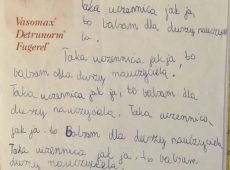 Vasomax
Detrunorm
Fugerel
Taka uczennica jak ja,
to balsam dla duszy nauczyciela.
Taka uczennica jak ja, to
balsam dla duszy nauczyciela.
Taka uczennica jak ja, to balsam dla
duszy nauczyciela. Taka uczennica
jak ja, to balsam dla duszy nauczyciela
Taka uczennica jak ja, to balsam
duszy nauczyciela.